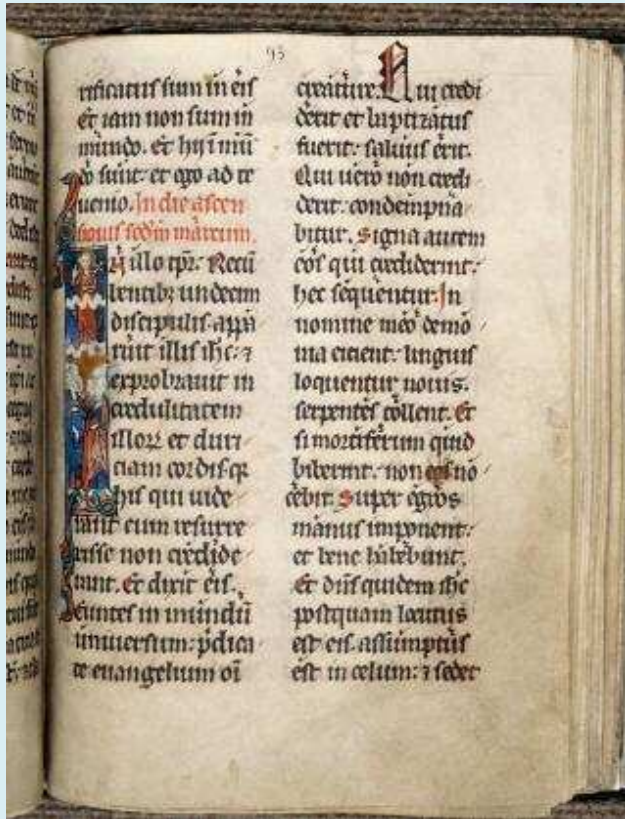 93
rificatus sum in eis
et iam non sum in
mundo. et hii ĩ mũ
do sunt: et ego ad te
uenio. In die ascen
sionis. sed'm marcum.
In illo tpr̃. Recũ
bentibꝫ undecim
discipulis appa
ruit illis ihc: ⁊
exprobrauit in
credulitatem
illoꝝ et duri
ciam cordis. q̃
his qui uide
rant eum resurre
xisse non credide
runt. Et dixit eis.
Euntes in mundũ
uniuersum: p̃dica
te euangelium õi
creature. Qui credi
derit et baptizatus
fuerit: saluus erit.
Qui uero non credi
derit: condempna
bitur. Signa autem
eos qui crediderint:
hec sequentur. In
nomine meo demo
nia eicient: linguis
loquentur nouis.
serpentes tollent. Et
si mortiferum quid
biberint: non eos no
cebit. Super egros
manus imponent:
et bene habebunt.
Et dñs quidem ihc
postquam locutus
est eis. assumptus
est in celum: ⁊ sedet